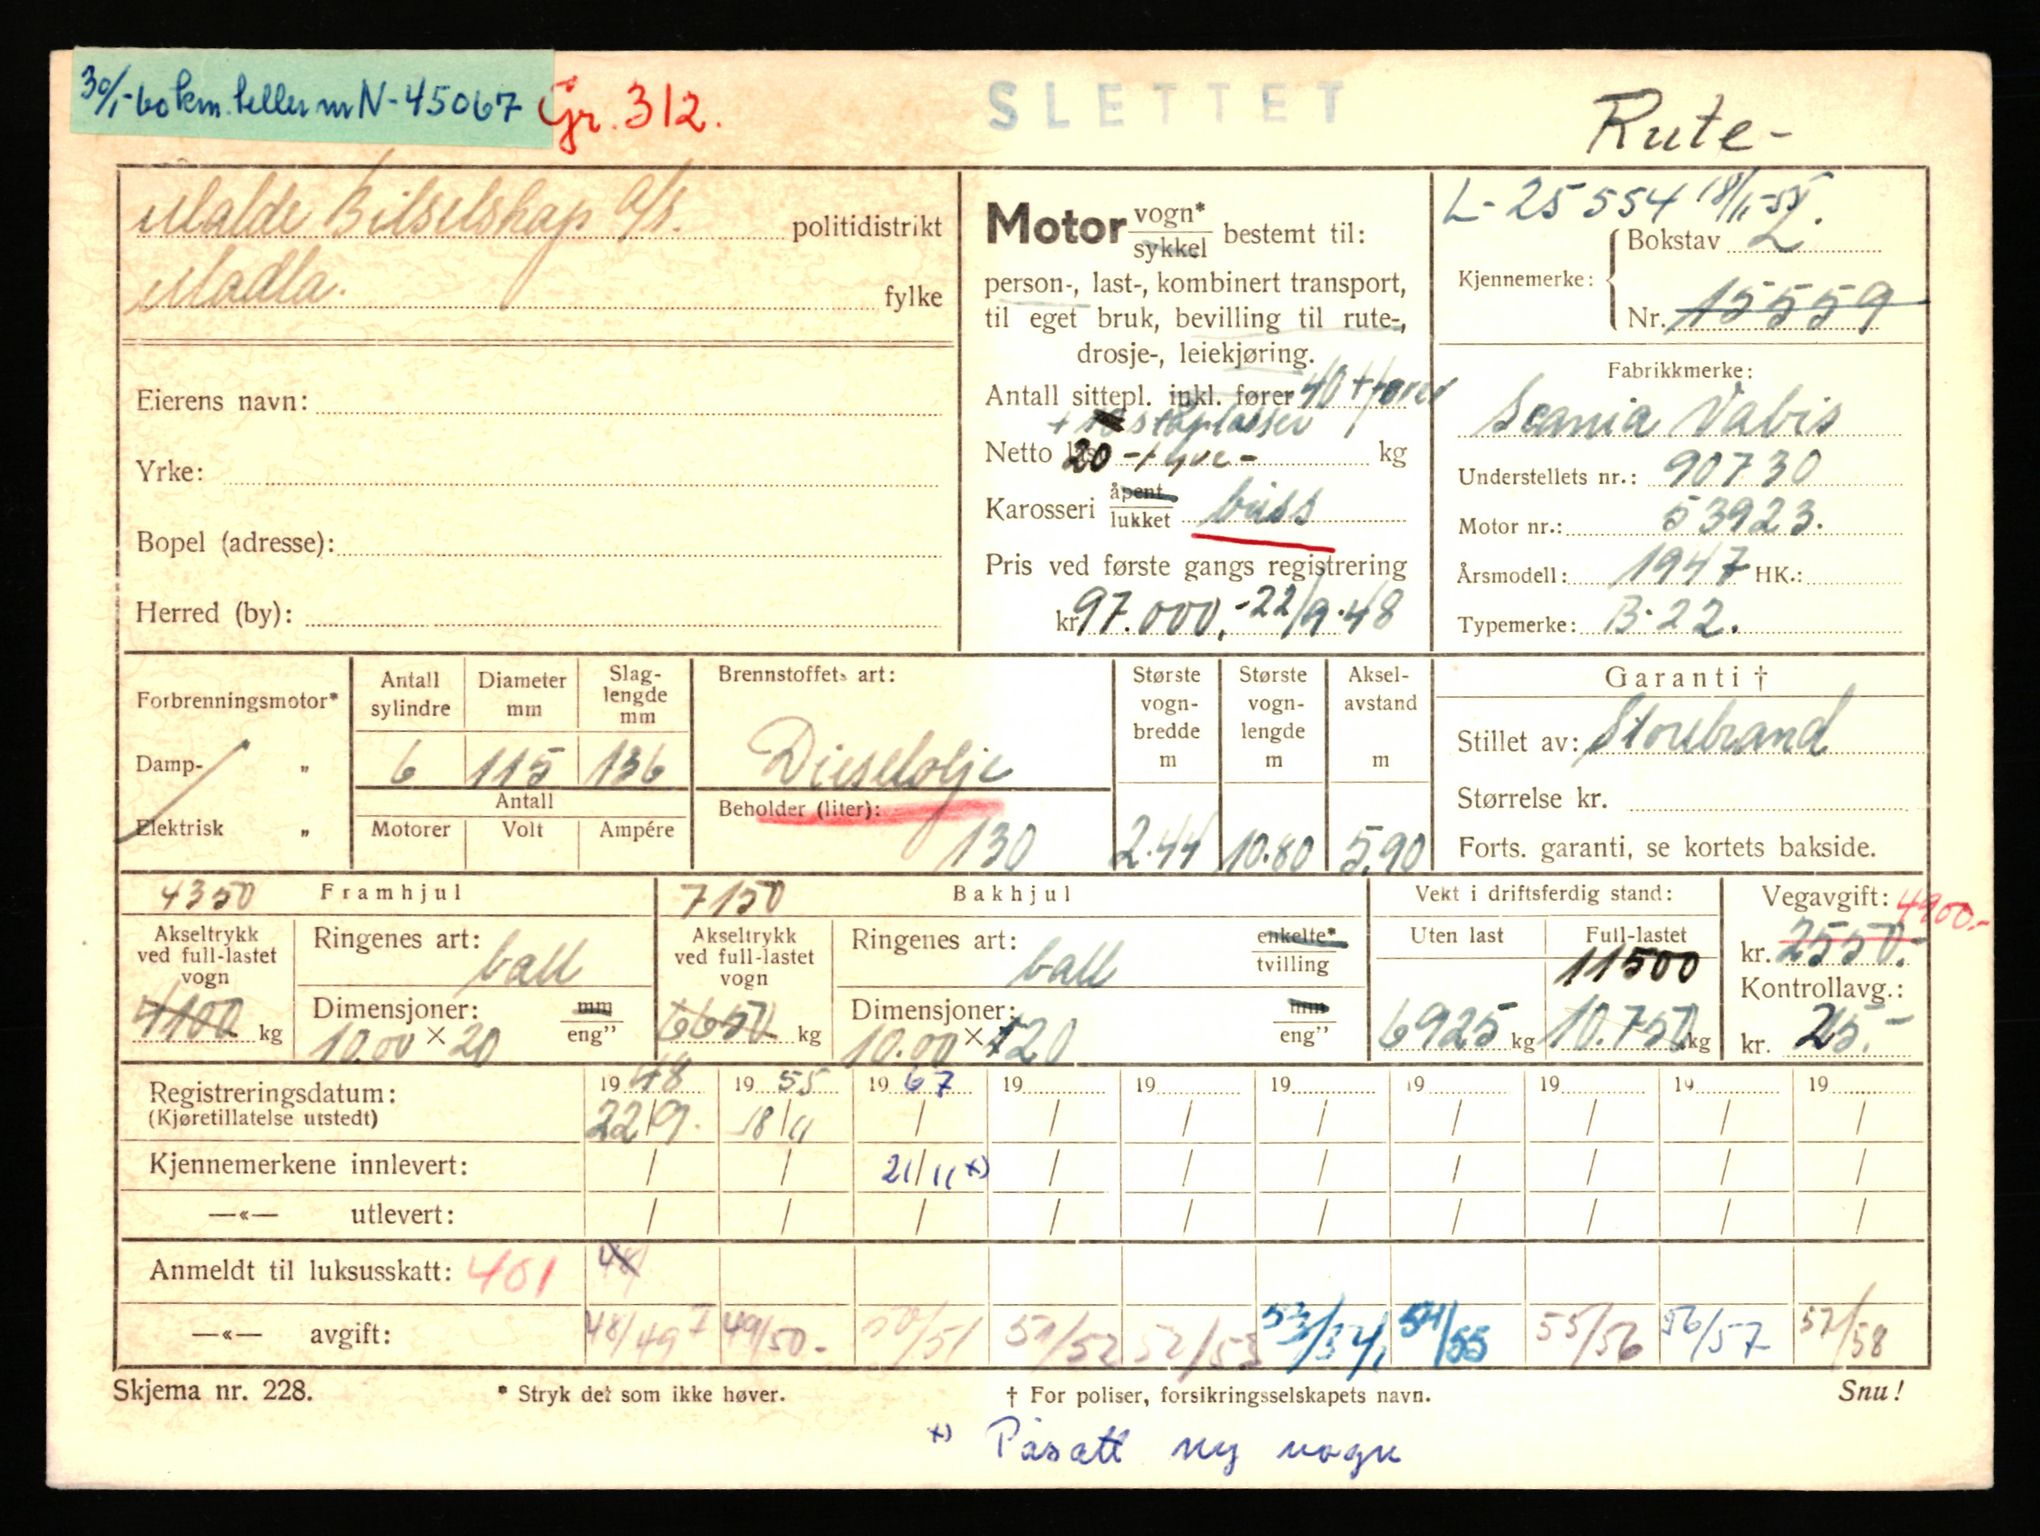 30/1-60 km.teller nr N-45067 Gr. 312.
SLETTET
Rute-
Malde Bilselskap a/s. politidistrikt
Madla. fylke
Eierens navn:
Yrke:
Bopel (adresse):
Herred (by):
Motor vogn* / sykkel bestemt til:
person-, last-, kombinert transport,
til eget bruk, bevilling til rute-,
drosje-, leiekjøring.
Antall sittepl. inkl. fører 40 + fører
+ ståplasser
Netto 20 - tyve - kg
Karosseri åpent / lukket buss
Pris ved første gangs registrering
kr 97.000,- 22/9-48
L-25554 18/11-55.
Kjennemerke: Bokstav L
Nr. 15559
Fabrikkmerke:
Scania Vabis
Understellets nr.: 90730
Motor nr.: 53923.
Årsmodell: 1947 HK.:
Typemerke: B-22.
Forbrenningsmotor*
Damp- „
Elektrisk „
Antall sylindre
Diameter mm
Slag-lengde mm
6 115 136
Antall
Motorer Volt Ampére
Brennstoffets art:
Dieselolje
Beholder (liter):
130
Største vogn-bredde m
2.44
Største vogn-lengde m
10.80
Aksel-avstand m
5.90
Garanti †
Stillet av: Storebrand
Størrelse kr.
Forts. garanti, se kortets bakside.
4350 Framhjul
Akseltrykk ved full-lastet vogn
4100 kg
Ringenes art: ball
Dimensjoner: mm / eng”
10.00 × 20
7150 Bakhjul
Akseltrykk ved full-lastet vogn
6650 kg
Ringenes art: ball enkelte* / tvilling
Dimensjoner: mm / eng”
10.00 × 20
Vekt i driftsferdig stand:
Uten last Full-lastet
11500
6925 kg 10.750 kg
Vegavgift: 4900.-
kr. 2550.-
Kontrollavg.:
kr. 25.-
Registreringsdatum: 19 48 19 55 19 67 19 19 19 19 19 19 19
(Kjøretillatelse utstedt) 22/9. 18/11 / / / / / / / /
Kjennemerkene innlevert: / / 21/11 x) / / / / / / /
—«— utlevert: / / / / / / / / / /
Anmeldt til luksusskatt: 401 48
—«— avgift: 48/49 I 49/50- 50/51 51/52 52/53 53/54, 54/55 55/56 56/57 57/58
Skjema nr. 228. * Stryk det som ikke høver. † For poliser, forsikringsselskapets navn. Snu!
x) Påsatt ny vogn